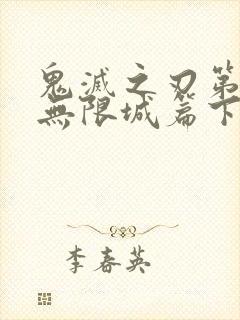 鬼滅之刃第
無限城篇下
李春英